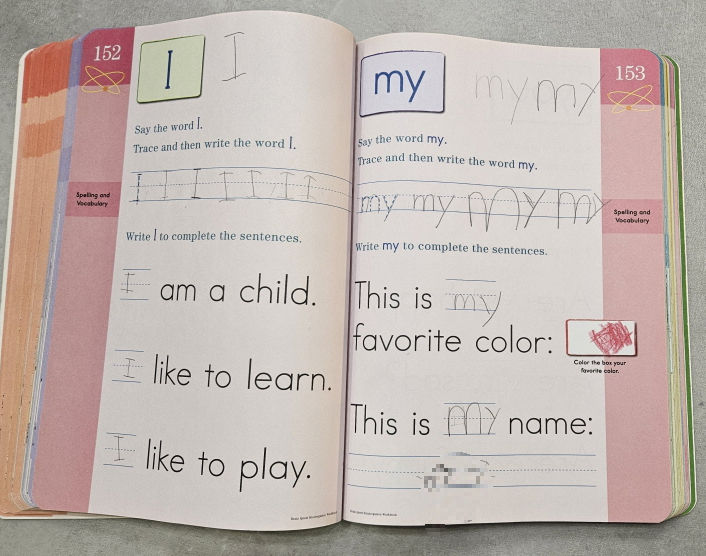 152
I I
Say the word I.
Trace and then write the word I.
I I I I I I I
Spelling and
Vocabulary
Write I to complete the sentences.
I am a child.
I like to learn.
I like to play.
Brain Quest Kindergarten Workbook
153
my my my
Say the word my.
Trace and then write the word my.
my my my my
Spelling and
Vocabulary
Write my to complete the sentences.
This is my
favorite color:
Color the box your
favorite color.
This is my name:
Brain Quest Kindergarten Workbook